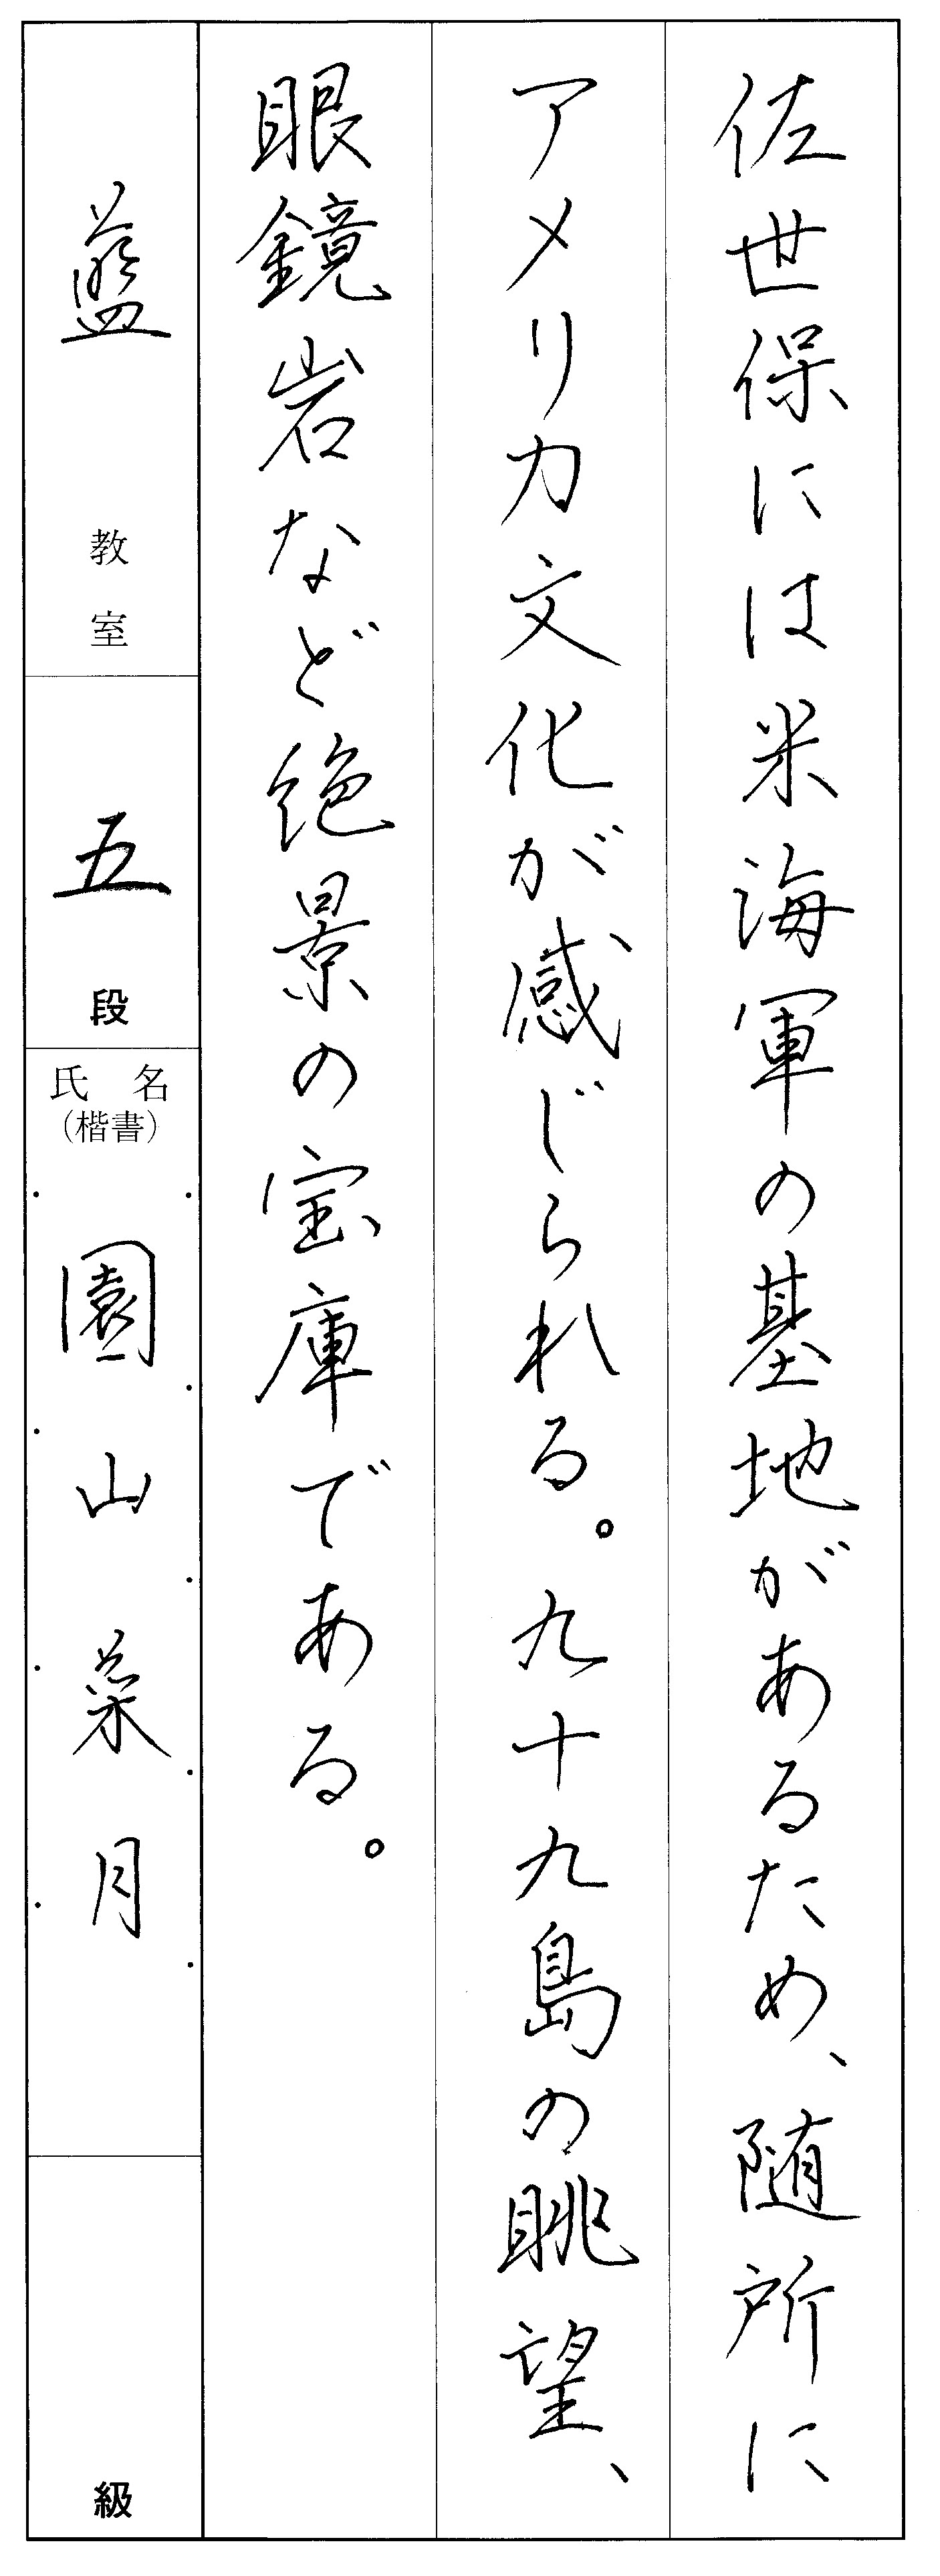 佐世保には米海軍の基地があるため、随所に
アメリカ文化が感じられる。九十九島の眺望、
眼鏡岩など絶景の宝庫である。
藍教室
五段
氏名
（楷書）
園山菜月
級